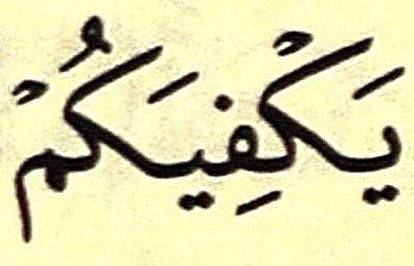 يَكْفِيَكُمْ